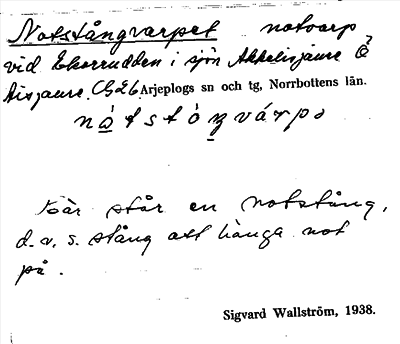 Notstångvarpet notvarp
vid Ekorrudden i sjön Akkelisjaure
Aisjaure. Arjeplogs sn och tg, Norrbottens län.
nåtstångvárpə
Här står en notstång,
d.v.s. stång att hänga not
på.
Sigvard Wallström, 1938.